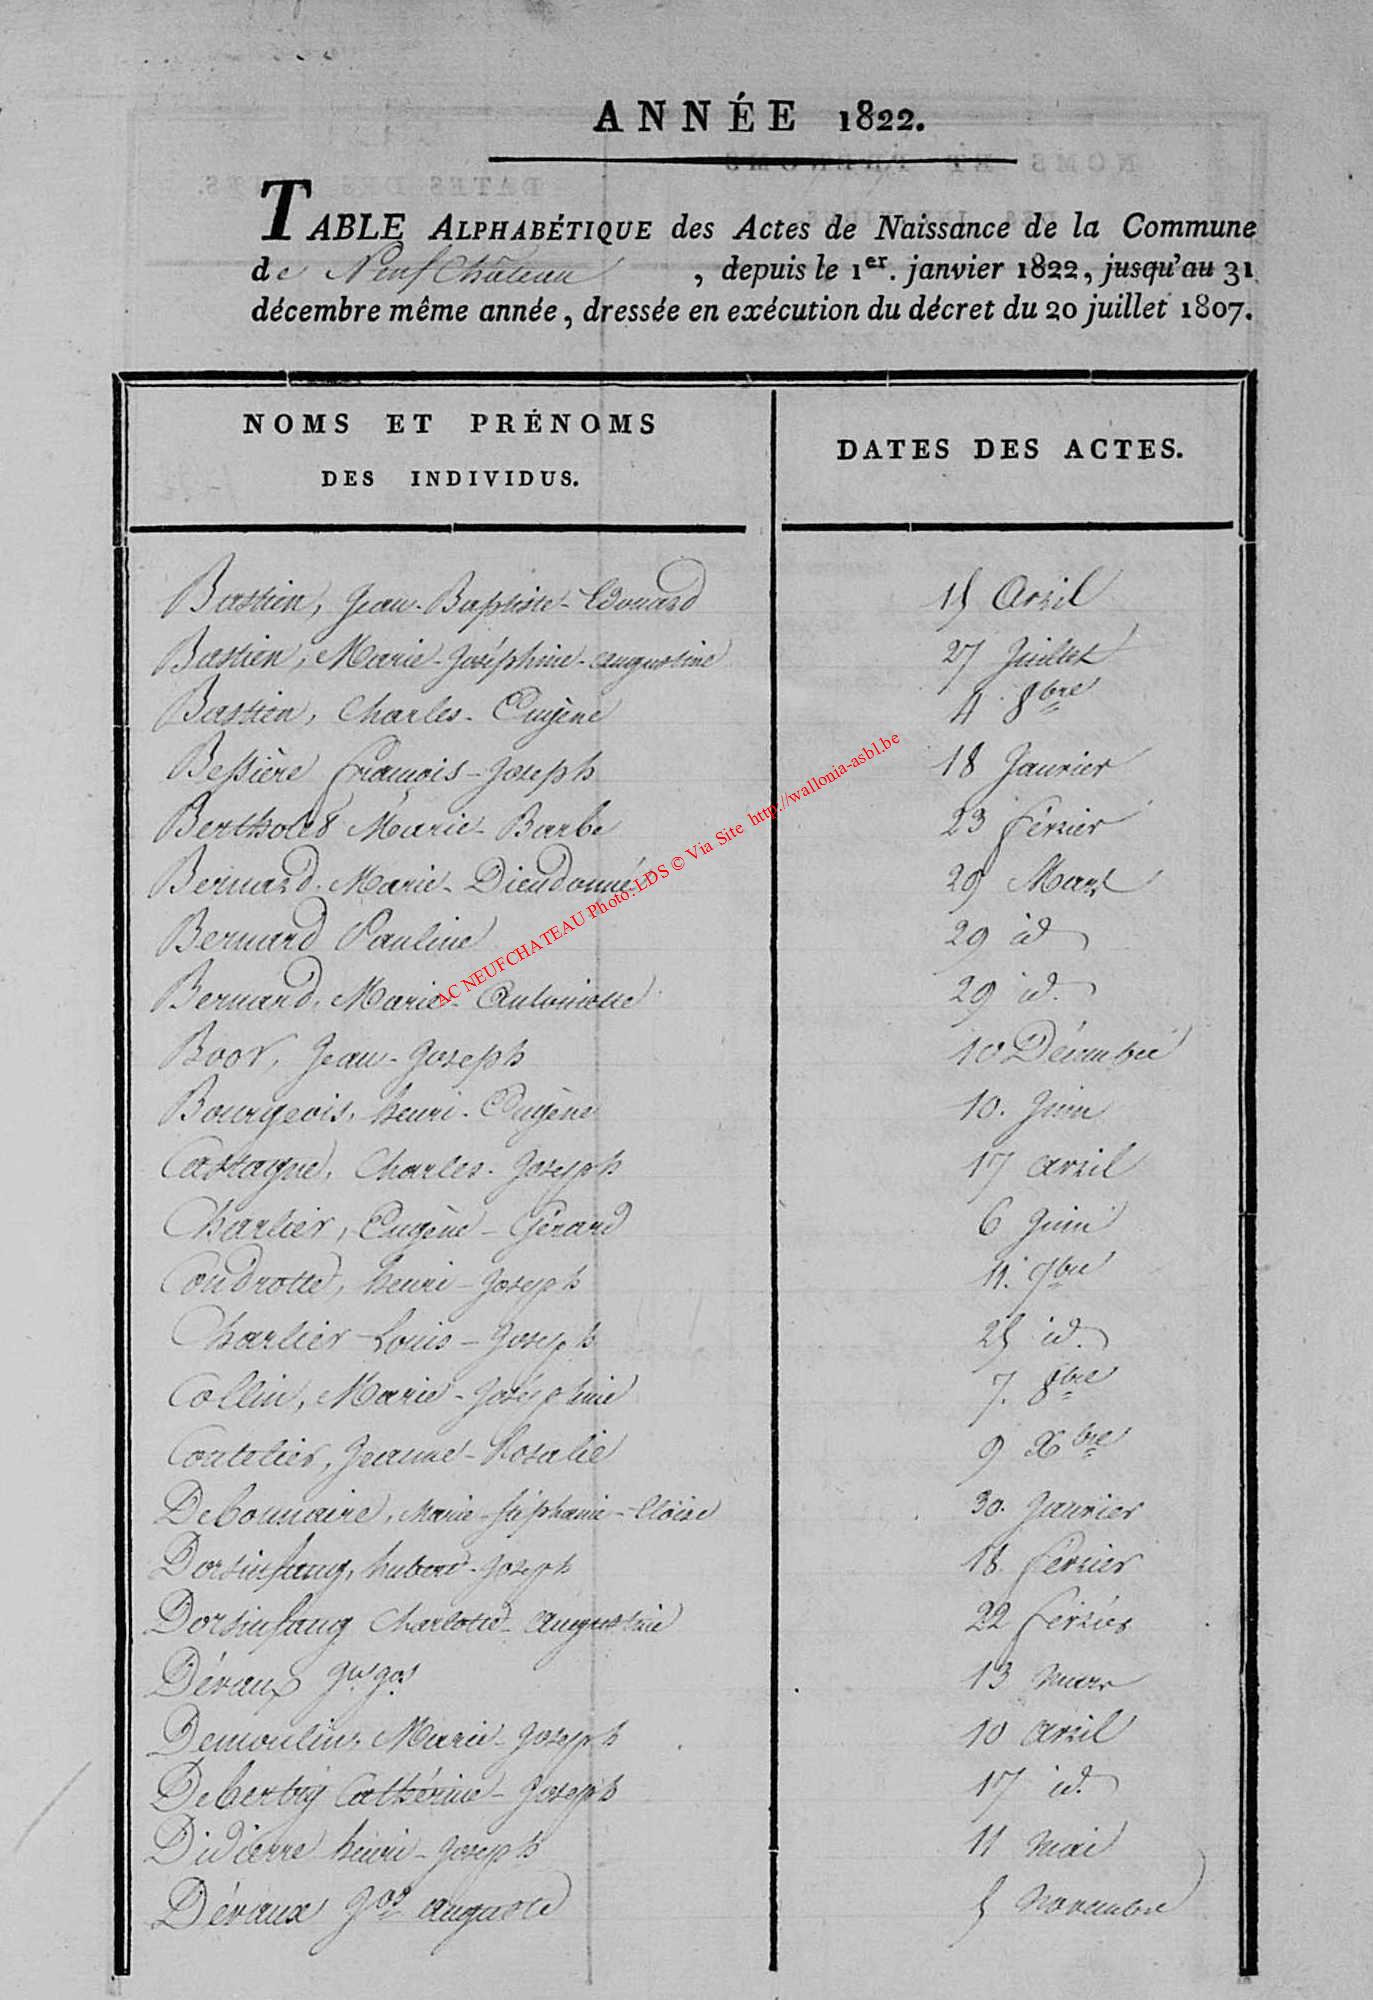 ANNÉE 1822.
TABLE ALPHABÉTIQUE des Actes de Naissance de la Commune
de Neufchâteau , depuis le 1er. janvier 1822, jusqu'au 31
décembre même année, dressée en exécution du décret du 20 juillet 1807.
NOMS ET PRÉNOMS
DES INDIVIDUS.
DATES DES ACTES.
Bastien, Jean-Baptiste-Edouard 15 Avril
Bastien, Marie-Joséphine-augustine 27 Juillet
Bastien, Charles-Eugène 4 8bre
Bessière François-Joseph 18 Janvier
Marie-Barbe 23 fevrier
Bernard, Marie-Dieudonnée 29 Mars
Bernard Pauline 29 id
Bernard, Marie-Antoinette 29 id.
Boor, Jean-Joseph 10 Décembre
Bourgeois, henri-Eugène 10. Juin
Castagne, Charles-Joseph 17 avril
Charlier, Eugène-Gérard 6 Juin
Condrotte, henri-Joseph 11. 7bre
Charlier Louis-Joseph 25 id.
Collin, Marie-Joséphine 7. 8bre
Coutelier, Jeanne-Rosalie 9 Xbre
Debonnaire, Marie-Stéphanie-Eloise 30. Janvier
Dorsinfang, hubert-Joseph 18 fevrier
Dorsinfang Charlotte-augustine 22 fevrier
Dévaux 13 mars
Demoulin, Marie-Joseph 10 avril
Cathérine-Joseph 17 id.
Didierre henri-Joseph 11 mai
Dévaux Jos auguste 5 Novembre
AC NEUFCHATEAU Photo: LDS © Via Site http://wallonia-asbl.be